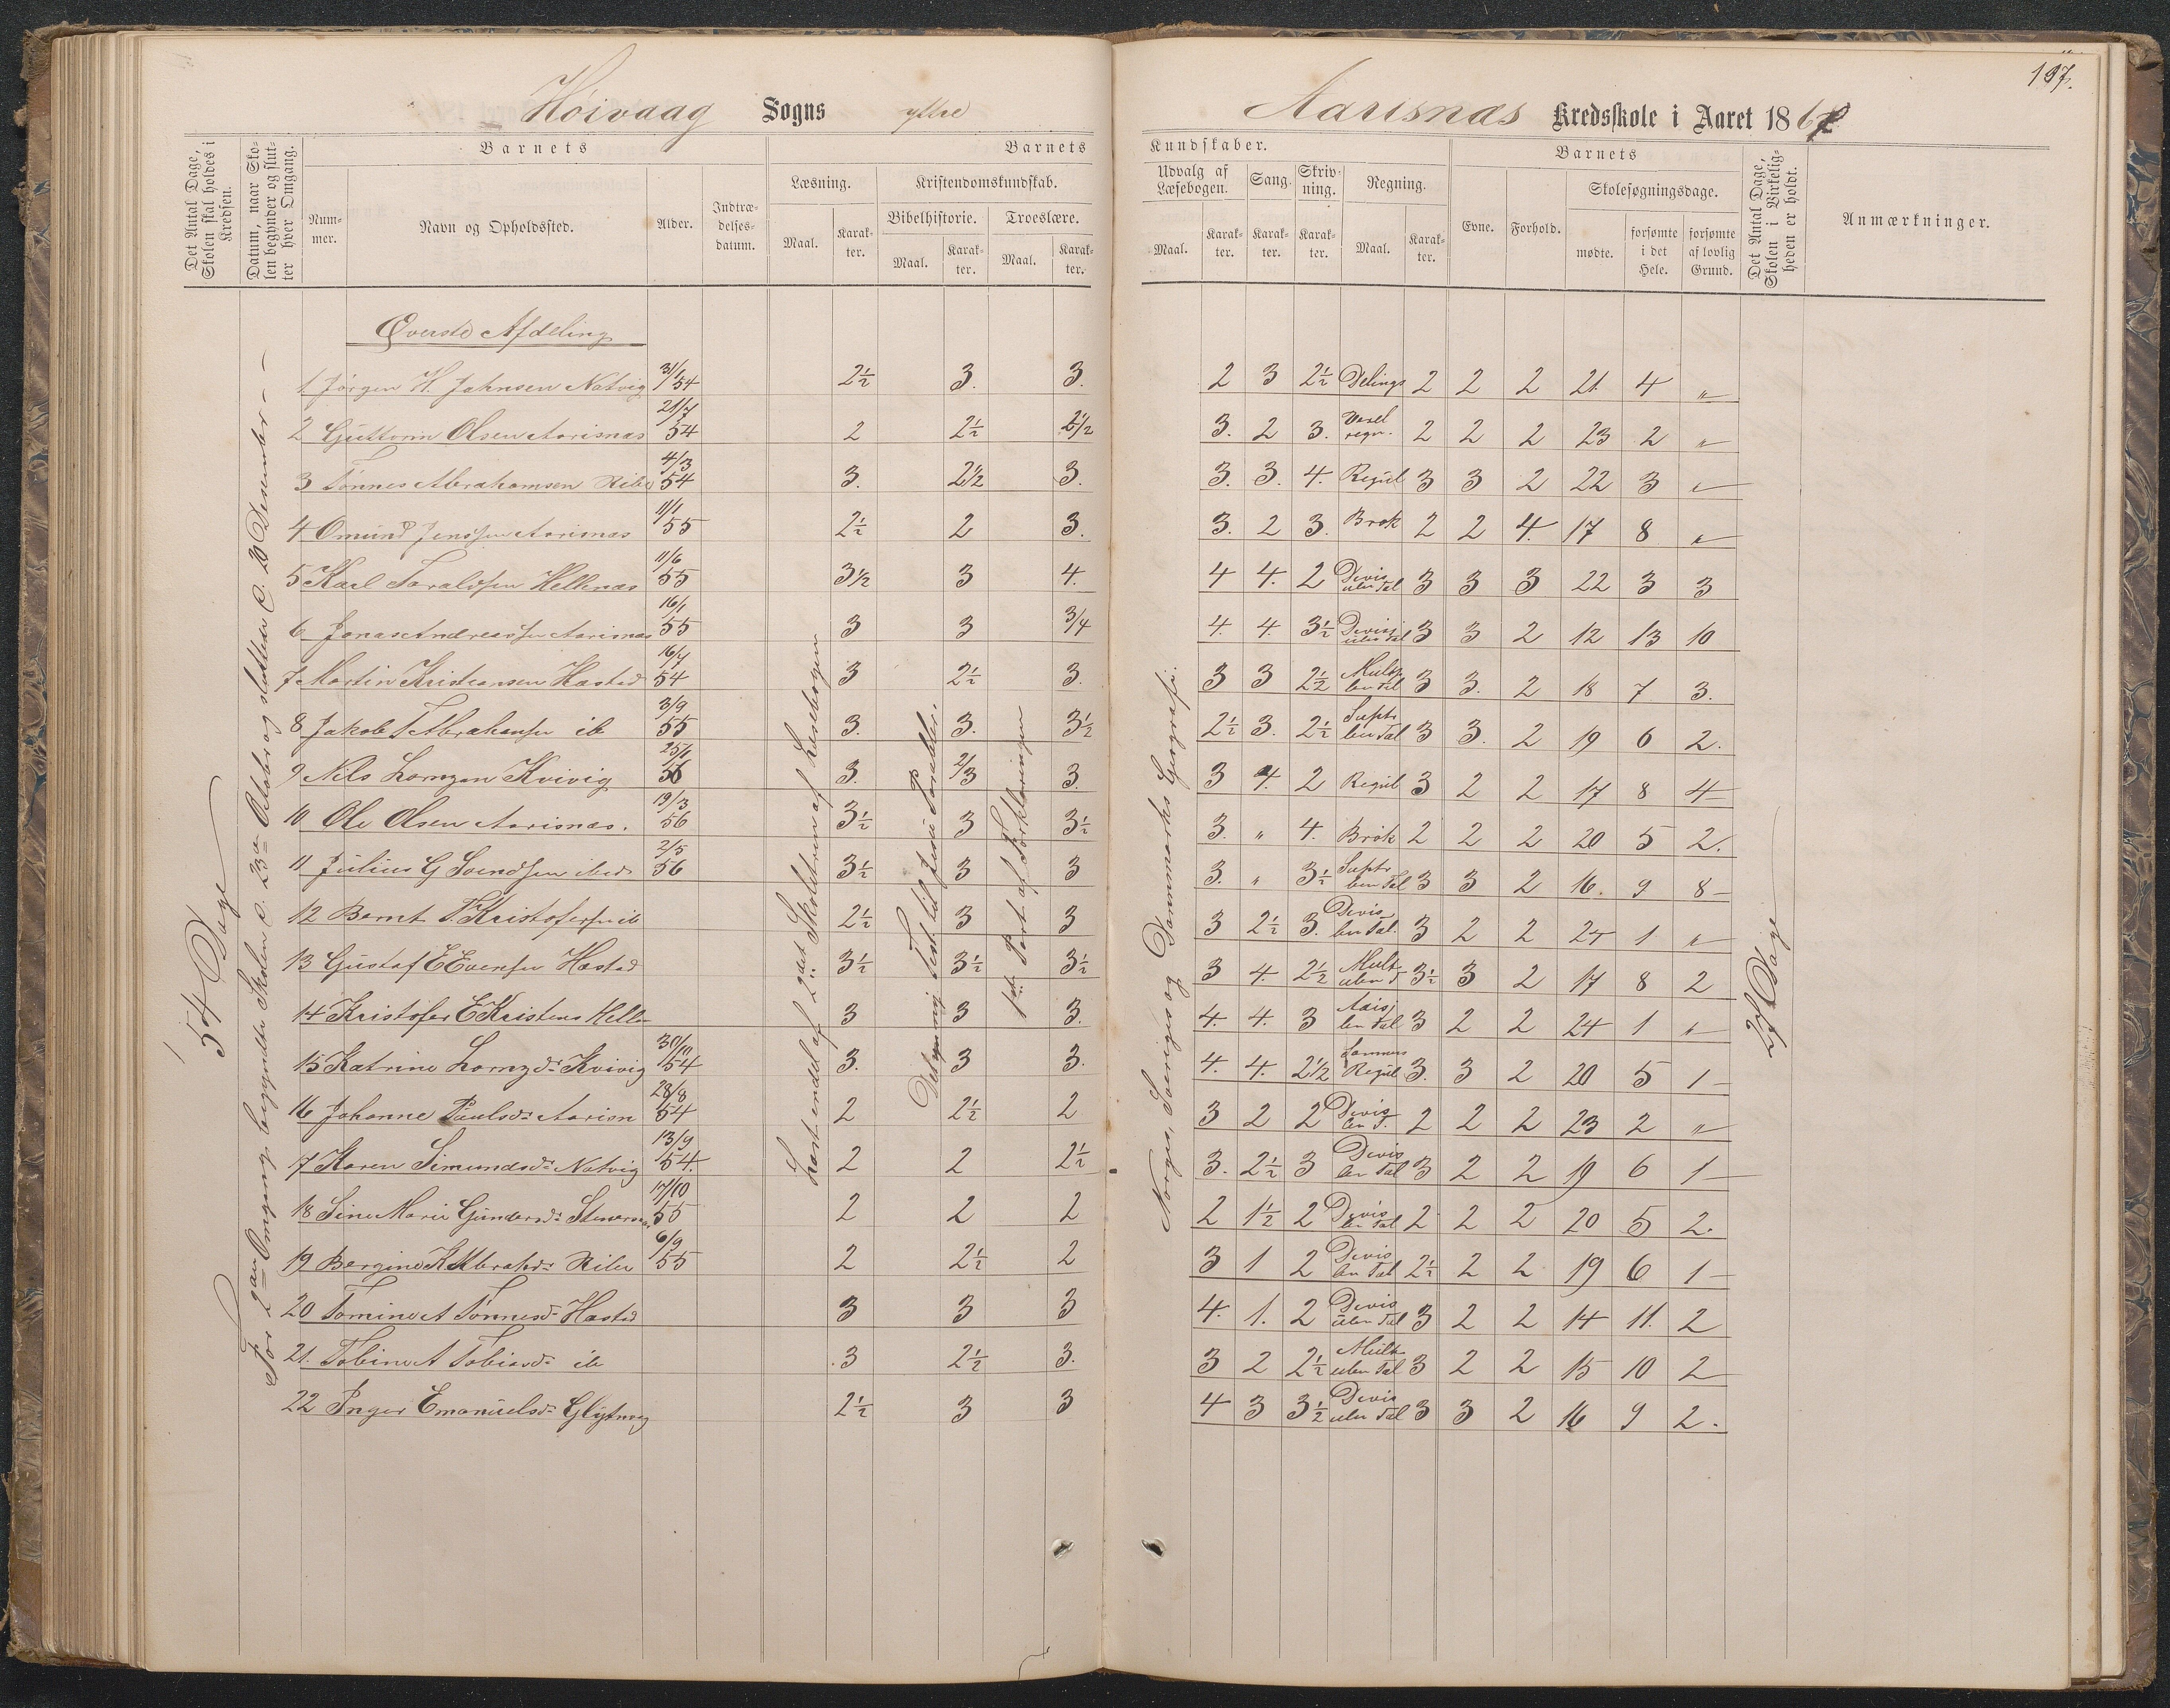 197.
Höivaag Sogns yttre Aarisnæs Kredsskole i Aaret 1867
Det Antal Dage, Skolen skal holdes i Kredsen.
Datum, naar Skolen begynder og slutter hver Omgang.
Barnets
Nummer.
Navn og Opholdssted.
Alder.
Indtrædelsesdatum.
Barnets
Læsning.
Maal.
Karakter.
Kristendomskundskab.
Bibelhistorie.
Maal.
Karakter.
Troeslære.
Maal.
Karakter.
Kundskaber.
Udvalg af Læsebogen.
Maal.
Karakter.
Sang.
Karakter.
Skrivning.
Karakter.
Regning.
Maal.
Karakter.
Barnets
Evne.
Forhold.
Skolesøgningsdage.
mødte.
forsømte i det Hele.
forsømte af lovlig Grund.
Det Antal Dage, Skolen i Virkeligheden er holdt.
Anmærkninger.
54 Dage
For 2den Omgang begyndte Skolen d. 23de Octobr og sluttede d. 20 Desember
Øverste Afdeling
Læst endel af 2det Skoletrin af Læsebogen
Det nye Test. til Jesu Parabler.
1ste Part af Forklaringen
Norges, Sveriges og Danmarks Geografi.
27 Dage
1 Jörgen H. Johnsen Natvig 31/1 54 2½ 3. 3. 2 3 2½ Delings 2 2 2 21. 4 "
2 Guttorm Olsen Aarisnæs 21/7 54 2 2½ 2½ 3. 2 3. regn. 2 2 2 23 2 "
3 Tönnes Abrahamsen Ribe 4/3 54 3. 2½ 3. 3. 3. 4. Regul 3 3 2 22 3 "
4 Omund Jenssen Aarisnæs 1/1 55 2½ 2 3. 3. 2 3. Brok 2 2 4. 17 8 "
5 Karl Taraldsen Hellenæs 11/6 55 3½ 3 4. 4 4. 2 Devis uben Tal 3 3 3 22 3 3
6 Jonas Andreassen Aarisnæs 16/1 55 3 3 3/4 4. 4. 3½ Devisj uben Tal 3 3 2 12 13 10
7 Martin Kristiansen Hæstad 16/7 54 3 2½ 3. 3 3 2½ Mult ben Tal 3 3. 2 18 7 3.
8 Jakob T Abrahamsen ib 3/9 55 3. 3. 3½ 2½ 3. 2½ Suptr ben Tal 3 3. 2 19 6 2.
9 Nils Lornzen Kvivig 25/1 56 3. 2/3 3. 3 4. 2 Regul 3 2 2 17 8 4
10 Ole Olsen Aarisnæs. 19/3 56 3½ 3 3½ 3. " 4. Brök 2 2 2 20 5 2.
11 Julius G Svendsen ibid 2/5 56 3½ 3 3 3. " 3½ Suptr ben Tal 3 3 2 16. 9 8
12 Bernt V. Kristofersen ib 2½ 3 3 3 2½ 3. Devis ben Tal. 3 2 2 24 1 "
13 Gustaf E Evensen Hæstad 3½ 3½ 3½ 3 4. 2½ Mult uben T 3½ 3 2 17 8 2
14 Kristofer E Kristens Helle 3 3 3. 4. 4. 3 ben Tal 3 2 2 24 1 "
15 Katrine Lornzdr Kvivig 30/10 54 3. 3 3. 4. 4. 2½ Sammens Regul 3. 3 2 20 5 1
16 Johanne Paulsdr Aarisn 28/8 54 2 2½ 2 3 2 2 Devis ben T. 2 2 2 23 2 "
17 Karen Simundsdr Natvig 13/9 54. 2 2 2½ 3. 2½ 3 Devis ben Tal 3 2 2 19 6 1
18 Sine Marie Gundersdr Stenernæs 17/10 55 2 2 2 2 1½ 2 Devis ben Tal 2 2 2 20 5 2.
19 Bergine K Abrahdr Ribe 6/9 55 2 2½ 2 3 1 2 Devis ben Tal 2½ 2 2 19 6 1
20 Tomine A Tönnesdr Hæstad 3 3 3 4. 1. 2 Devis uben Tal 3 2 2 14 11. 2
21. Tobine A Tobiasdr ib 3 2½ 3. 3 2 2½ Mult uben Tal 3 2 2 15 10 2
22 Inger Emanuelsdr 2½ 3 3 4 3 3½ Devis uben Tal 3 3 2 16 9 2.